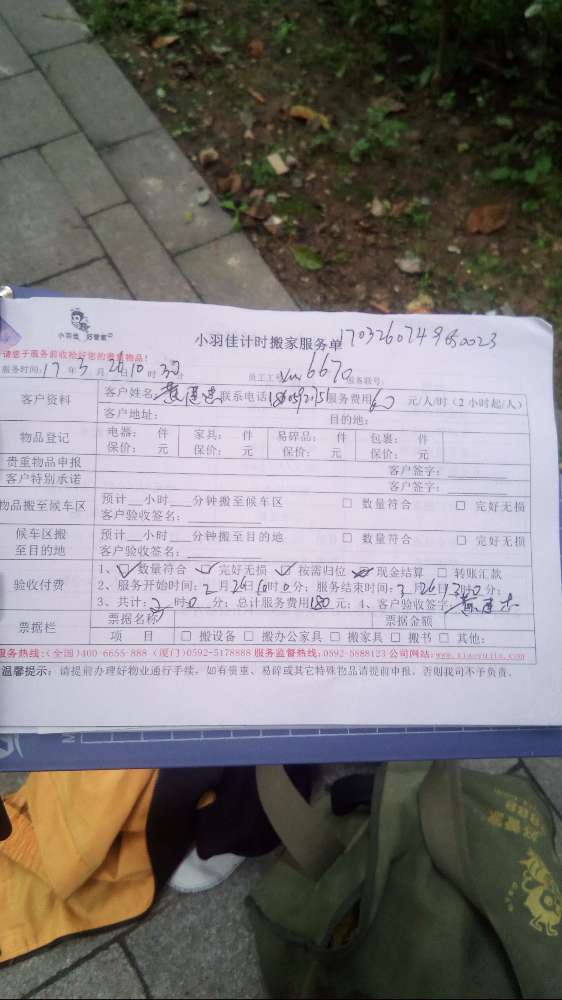 小羽佳 好管家
小羽佳计时搬家服务单
请您于服务前收拾好您的贵重物品!
服务时间:17年3月26日10时30分 员工工号 6670 服务联号:
客户资料 客户姓名 联系电话 服务费用60元/人/时(2小时起/人)
客户地址: 目的地:
物品登记 电器: 件 家具: 件 易碎品: 件 包裹: 件
保价: 元 保价: 元 保价: 元 保价: 元
贵重物品申报 客户签字:
客户特别承诺 客户签字:
物品搬至候车区 预计__小时___分钟搬至候车区 □ 数量符合 □ 完好无损
客户验收签名:
候车区搬至目的地 预计__小时___分钟搬至目的地 □ 数量符合 □ 完好无损
客户验收签名:
验收付费 1、☑数量符合 ☑完好无损 ☑按需归位 ☑现金结算 □ 转账汇款
2、服务开始时间: 月26日10时0分;服务结束时间:3月26日13时0分;
3、共计: 时0分;总计服务费用180元;4、客户验收签字:
票据栏 票据名称 票据金额
项 目 □ 搬设备 □ 搬办公家具 □ 搬家具 □ 搬书 □ 其他:
服务热线:(全国)400-6655-888 (厦门)0592-5178888 服务监督热线:0592-5888123 公司网站:www.xiaoyujia.com
温馨提示:请提前办理好物业通行手续。如有贵重、易碎或其它特殊物品请提前申报,否则我司不予负责。